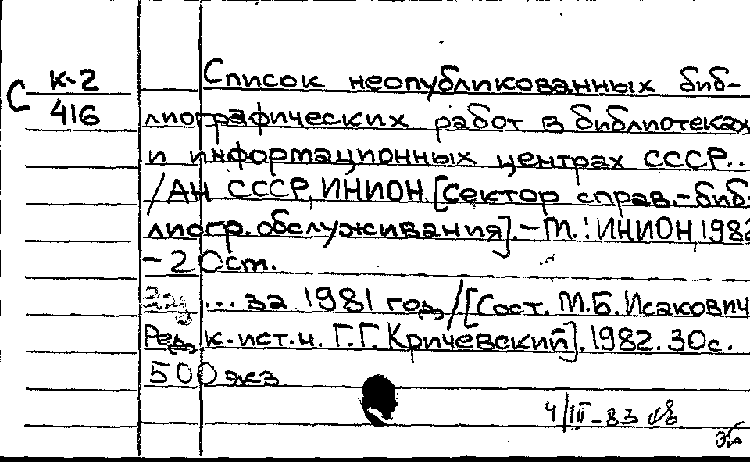 С К-2 Список неопубликованных биб-
416 лиографических работ в библиотеках
и информационных центрах СССР..
/АН СССР, ИНИОН. [Сектор справ.-биб-
лиогр. обслуживания]. - М.: ИНИОН, 1982
- 20 см.
... за 1981 год / [Сост. М.Б. Исакович
Ред. к.ист.н. Г.Г. Кричевский]. 1982. 30 с.
500 экз
4/III-83